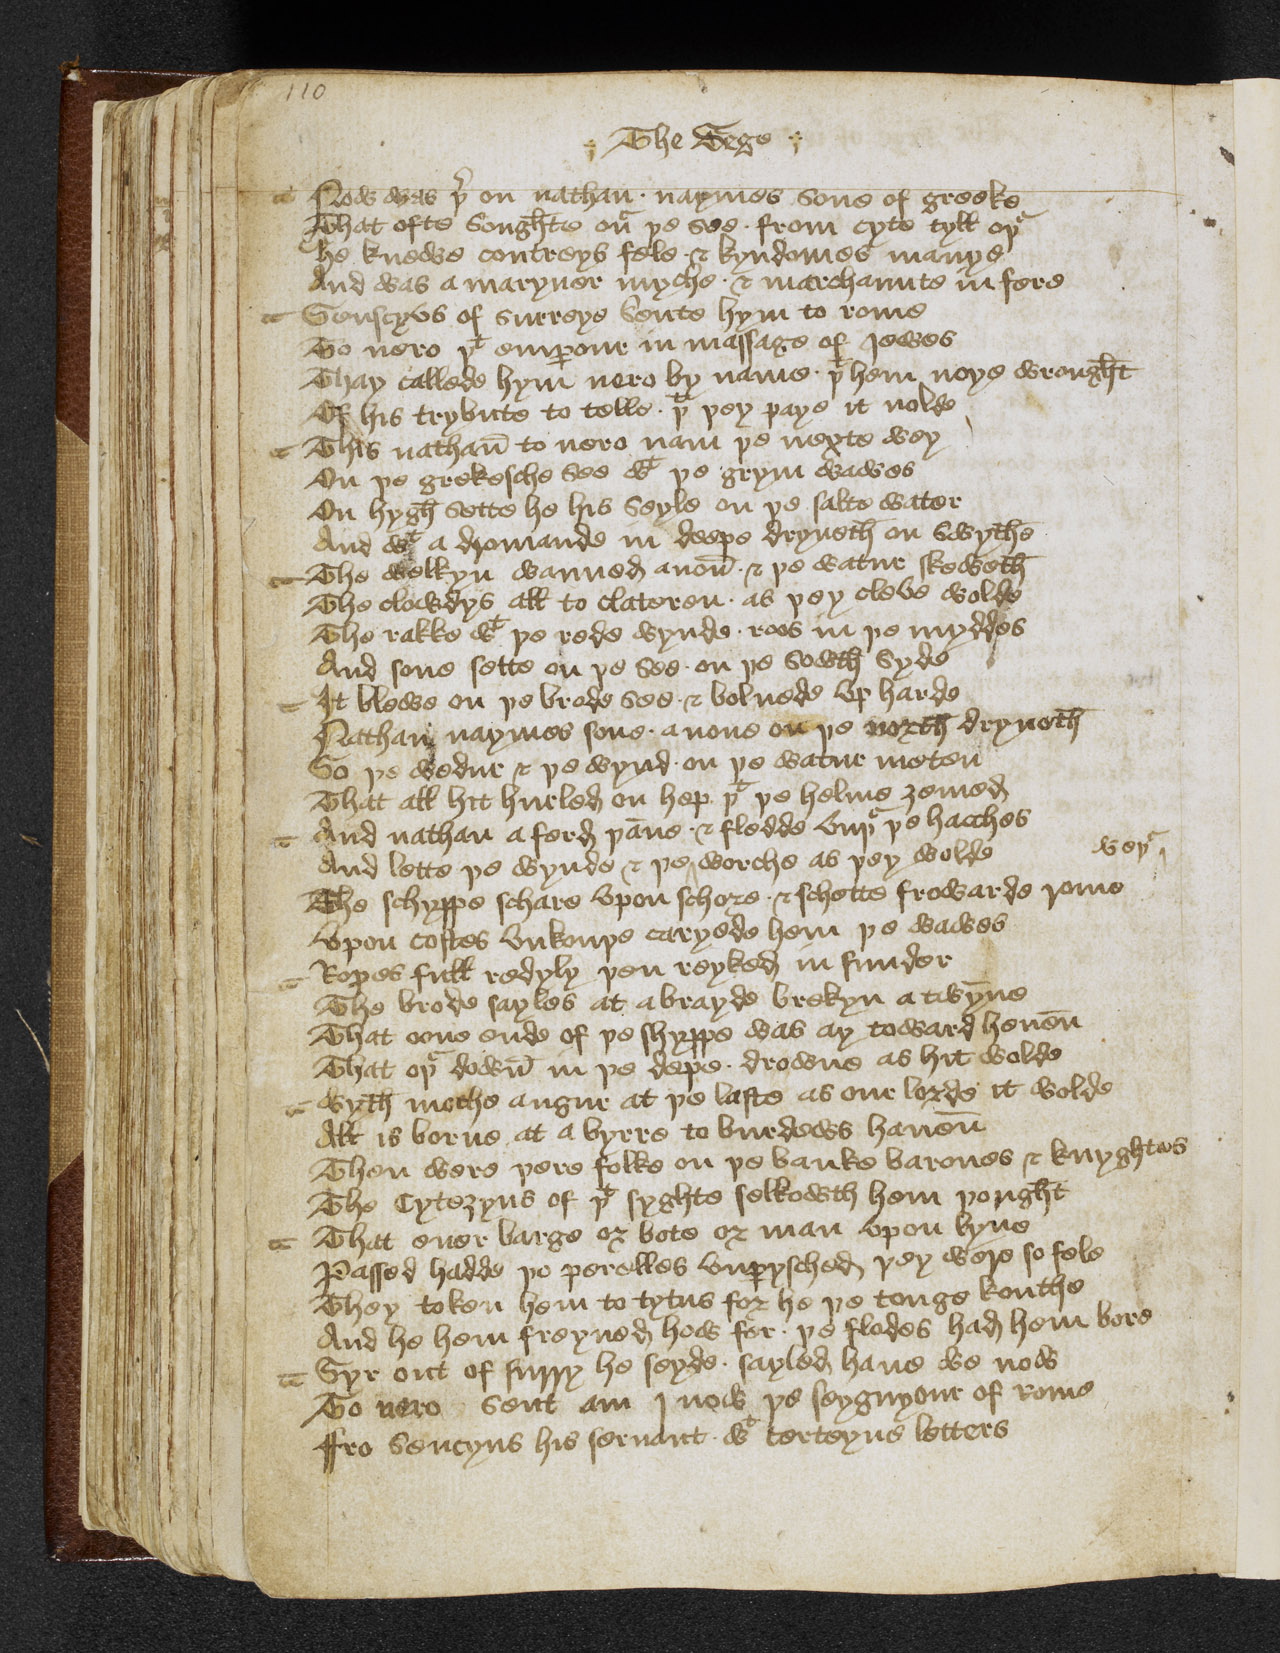 110
The Sege
Now was þʳ on nathan · naymes sone of greeke
That ofte soughte ouʳ þe see · from cyte tyll oþʳ
he knewe contreys fele · & kyndomes manye
And was a maryner myche · & marchaunte in fere
Senscyus of surreye sente hym to rome
To nero þᵗ emperour in massage of Jewes
Thay callede hym nero by name · þᵗ hem noye wrought
Of his trybute to telle · þᵗ þey paye it nolde
This nathan̄ to nero nam þe nexte wey
On þe grekesche see wᵗ þe grym wawes
On hygh sette he his seyle on þe salte water
And wᵗ a dromande in deepe dryueth on swythe
The welkyn wanned anon̄ · & þe watur skeweth
The clowdys all to clateren · as þey cleve wolde
The rakke wᵗ þe rede wynde · roos in þe myddes
And sone sette on þe see · on þe sowth syde
It blewe on þe brode see · & bolnede vp harde
Nathan naymes sone · anone on þe north dryueth
So þe wedur & þe wynd · on þe watur meten
That all hit hurled on hep · þᵗ þe helme ȝemed
And nathan a ferd þān̄e · & fledde vnþʳ þe hacches
And lette þe wynde & þe worche as þey wolde
weþʳ
The schyppe schare vpon schore · & schette frowarde rome
Vpon costes vnkouþe caryede hem þe wawes
Ropes full redyly þen reyked in sunder
The brode sayles at abrayde brekyn a twyn̄e
That oone ende of þe shyppe was ay toward heuen̄
That oþʳ down̄ in þe depe · drowne as hit wolde
wyth moche angur at þe laste as our lorde it wolde
All is borne at a byrre to burdews hauen̄
Then were þere folke on þe banke barones & knyghtes
The Cytezyns of þᵗ syghte selkowth hem þought
That euer barge or bote or man vpon lyue
Passed hadde þo perelles vnpysched þey were so fele
They token hem to tytus for he þe tonge kouthe
And he hem freyned how fer · þe flodes had hem bore
Syr out of surry he seyde · sayled haue we now
To nero sent am I now þe seygnyour of rome
ffro sencyus his seruant · wᵗ certeyne letters